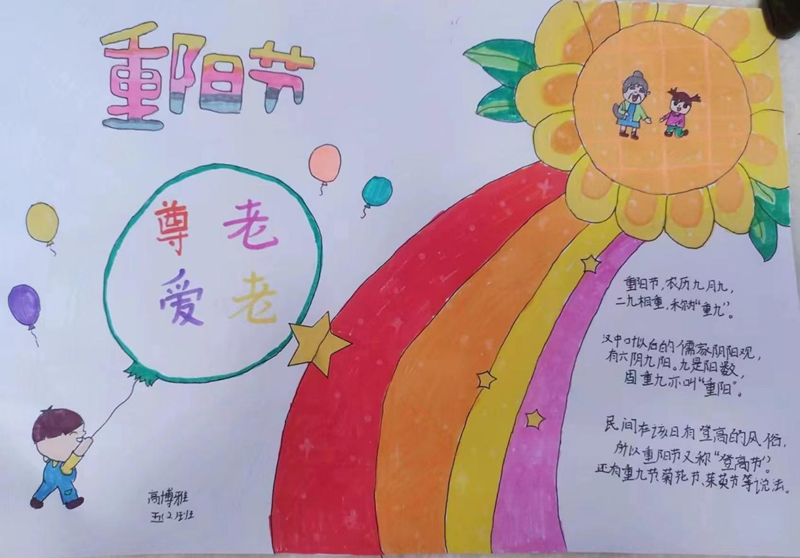 重阳节
尊老
爱老
重阳节,农历九月九,
二九相重,称为"重九"。
汉中叶以后的儒家阴阳观,
有六阴九阳。九是阳数,
固重九亦叫"重阳"。
民间在该日有登高的风俗,
所以重阳节又称"登高节"。
还有重九节菊花节、茱萸节等说法。
高博雅